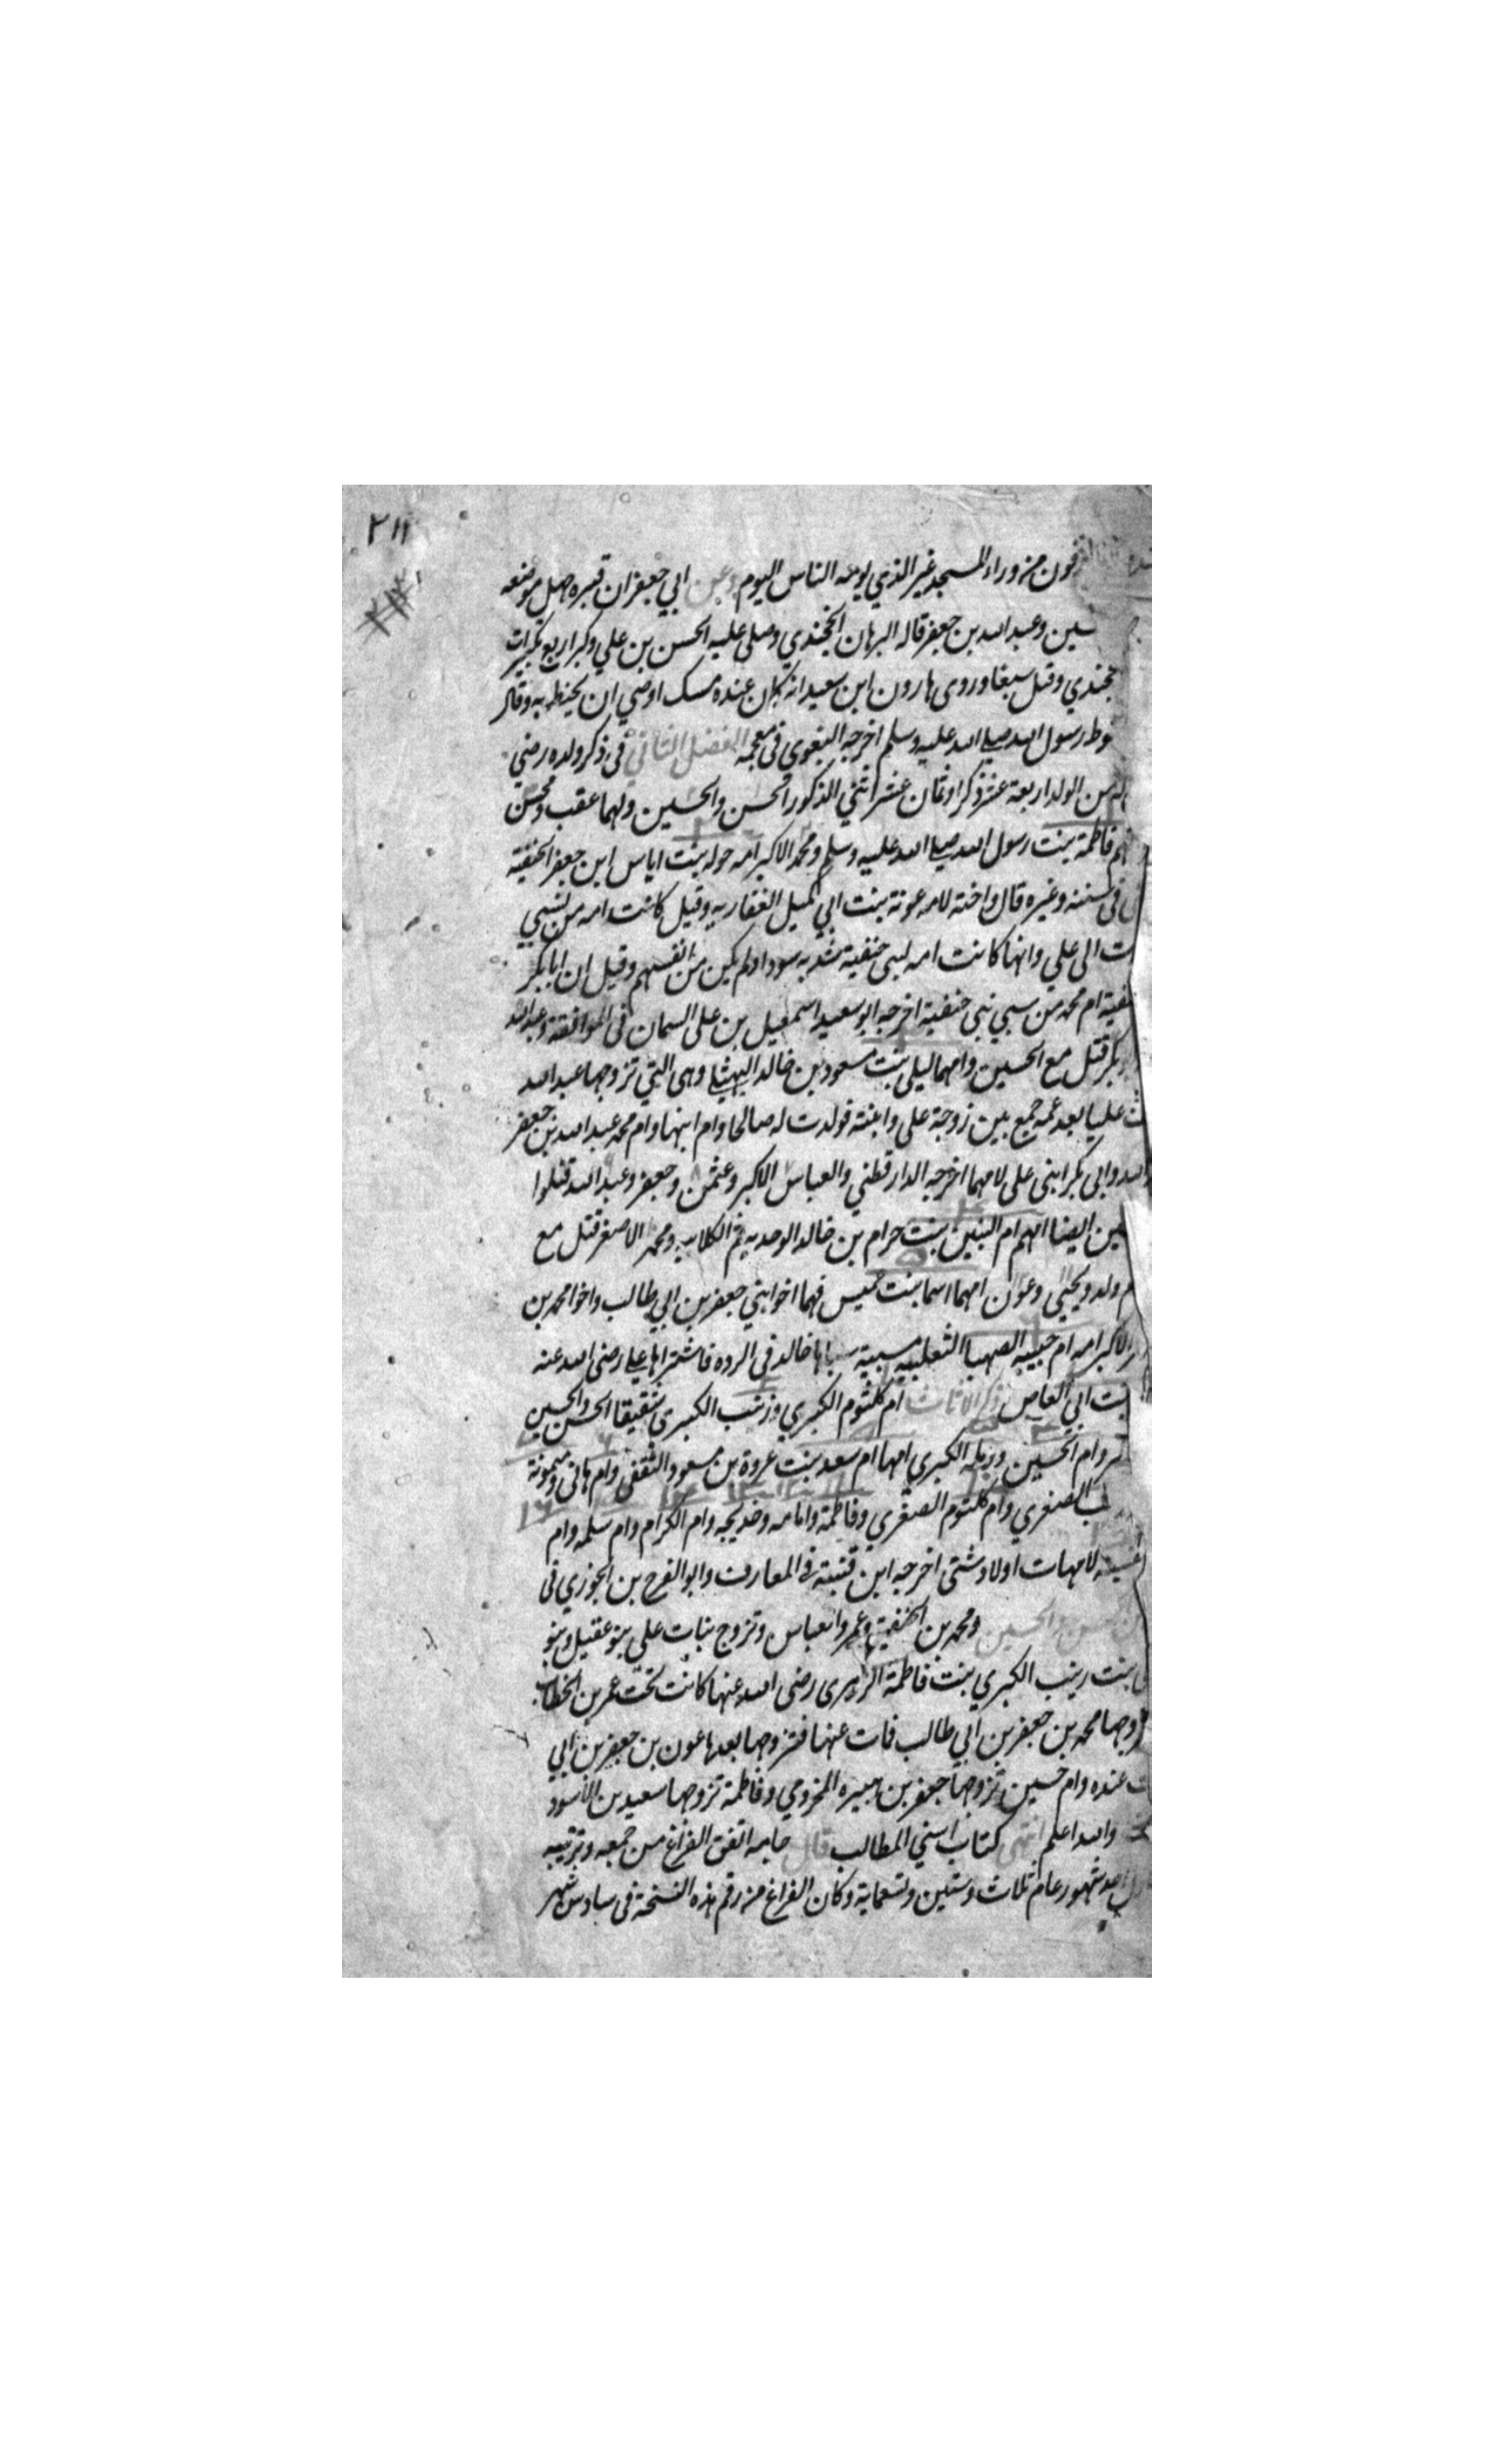 ٢١١
فون من وراء المسجد غير الذي يومه الناس اليوم وعن ابي جعفر ان قبره جهل موضعه
سين وعبد الله بن جعفر قاله البرهان الخجندي وصلى عليه الحسن بن علي وكبر اربع تكبيرات
خجندي وقيل سبعا وروى هارون ابن سعيد انه كان عنده مسك اوصي ان يحنط به وقال
نوط رسول الله صلى الله عليه وسلم اخرجه البغوي فى معجمه الفصل الثاني فى ذكر ولده رضي
له من الولد اربعة عشر ذكرا وثمان عشر انثي الذكور الحسن والحسين ولهما عقب ومحسن
امهم فاطمة بنت رسول الله صلى الله عليه وسلم ومحمد الاكبر امه خوله بنت اياس ابن جعفر الحنفية
فى سننه وغيره قال واخته لامه عونة بنت ابي المكمل الغفاريه وقيل كانت امه من سبي
ت الى علي وانها كانت امه لبنى حنفية سنديه سودا ولم يكن من انفسهم وقيل ان ابا بكر
نفية ام محمد من سبي بنى حنفية اخرجه ابو سعيد اسمعيل بن على السمان فى الموافقة وعبد الله
بكر قتل مع الحسين وامهما ليلى بنت مسعود بن خالد النهشلي وهى التي تزوجها عبد الله
ث عليا بعد عمه جمع بين زوجة على وابنته فولدت له صالحا وام ابنها وام محمد عبد الله بن جعفر
الله وابى بكر ابنى على لامهما اخرجه الدارقطني والعباس الاكبر وعثمن وجعفر وعبد الله قتلوا
سين ايضا امهم ام البنين بنت حرام بن خالد الوحديه ثم الكلابيه ومحمد الاصغر قتل مع
ام ولد ويحيى وعوان امهما اسما بنت عميس فهما اخوا بني جعفر بن ابي طالب واخوا محمد بن
الاكبر امه ام حبيبه الصهبا الثعلبيه سبيه سباها خالد فى الرده فاشتراها علي رضى الله عنه
بنت ابي العاص ذكر الاناث ام كلثوم الكبري وزينب الكبرى شقيقا الحسن والحسين
وام الحسين ورمله الكبرى امهما ام سعد بنت عروة بن مسعود الثقفى وام هانى وميمونة
ب الصغري وام كلثوم الصغرى وفاطمة وامامه وخديجه وام الكرام وام سلمه وام
لامهات اولاد شتى اخرجه ابن قتيبة فى المعارف وابو الفرج بن الجوزي فى
والحسين ومحمد بن الحنفية وعمر والعباس وتزوج بنات على بنو عقيل وبنو
بنت زينب الكبري بنت فاطمة الزهرى رضى الله عنها كانت تحت عمر بن الخطاب
زوجها محمد بن جعفر بن ابي طالب فمات عنها فتزوجها بعدها عون بن جعفر بن ابي
ت عنده وام حسين تزوجها جعفر بن هبيره المخزومي وفاطمة تزوجها سعيد بن الاسود
والله اعلم انتهى كتاب اسني المطالب قال جامعه اتفق الفراغ من جمعه وترتيبه
احد شهور عام ثلاث وستين وتسعماية وكان الفراغ من رقم هذه النسخة فى سادس شهر